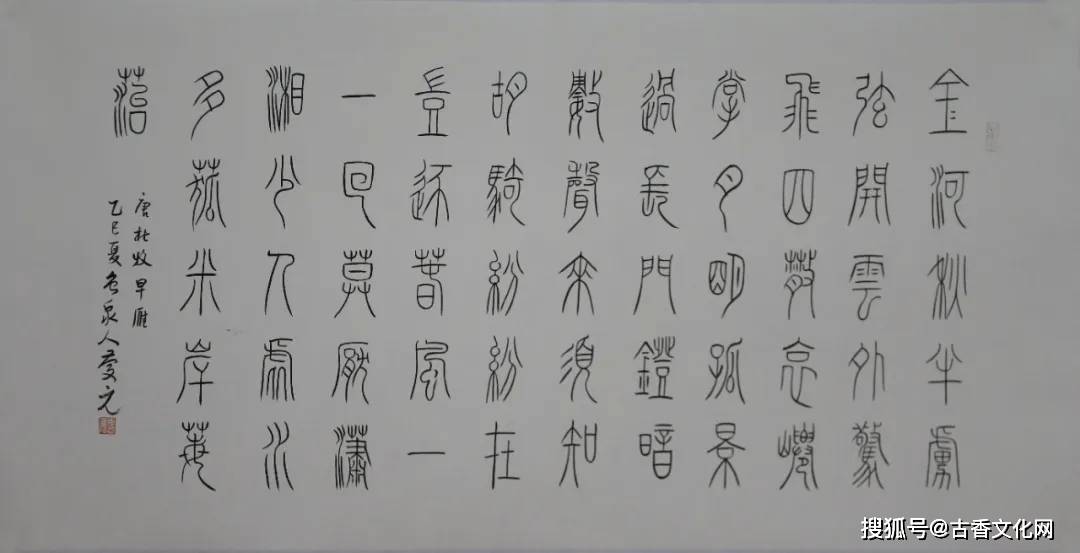 金河秋半虜
弦開雲外驚
飛四散哀僊
掌月明孤景
過長門鐙暗
數聲來須知
胡騎紛紛在
豈逐春風一
一回莫厭瀟
湘少人處水
多菰米岸莓
菭
唐杜牧早雁
乙巳夏泉人慶元
搜狐号@古香文化网